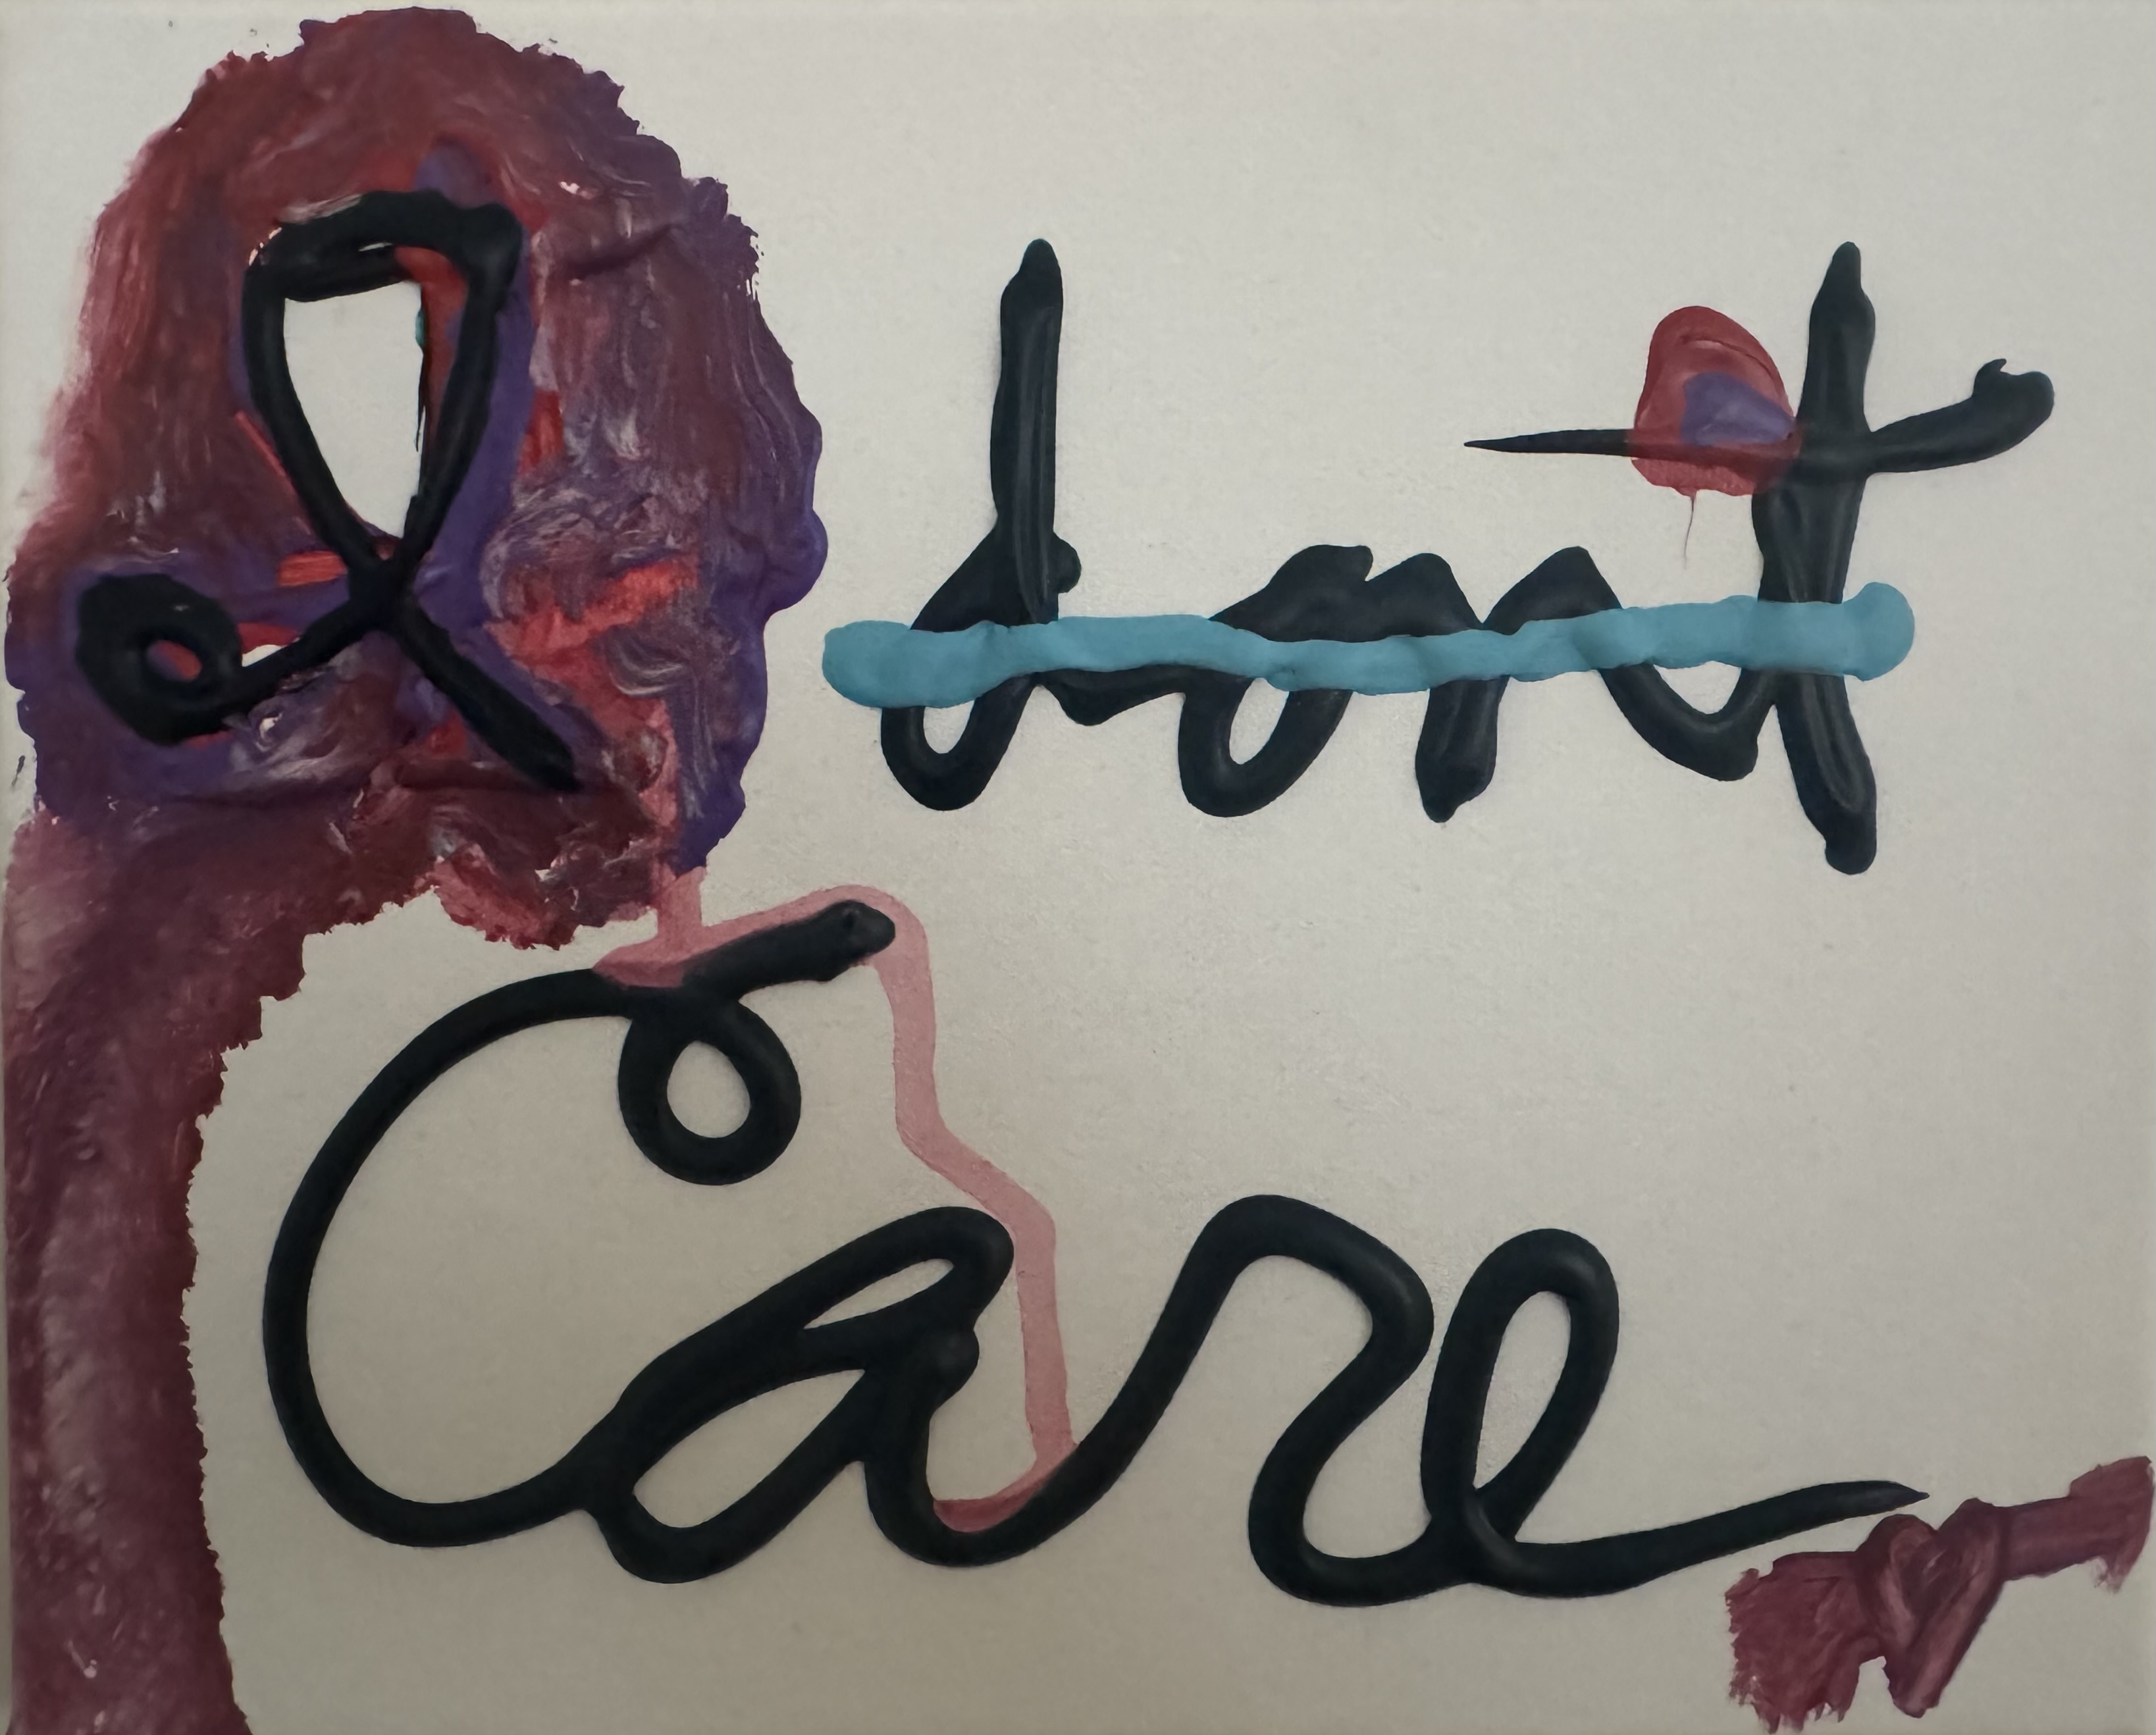 I dont
Care